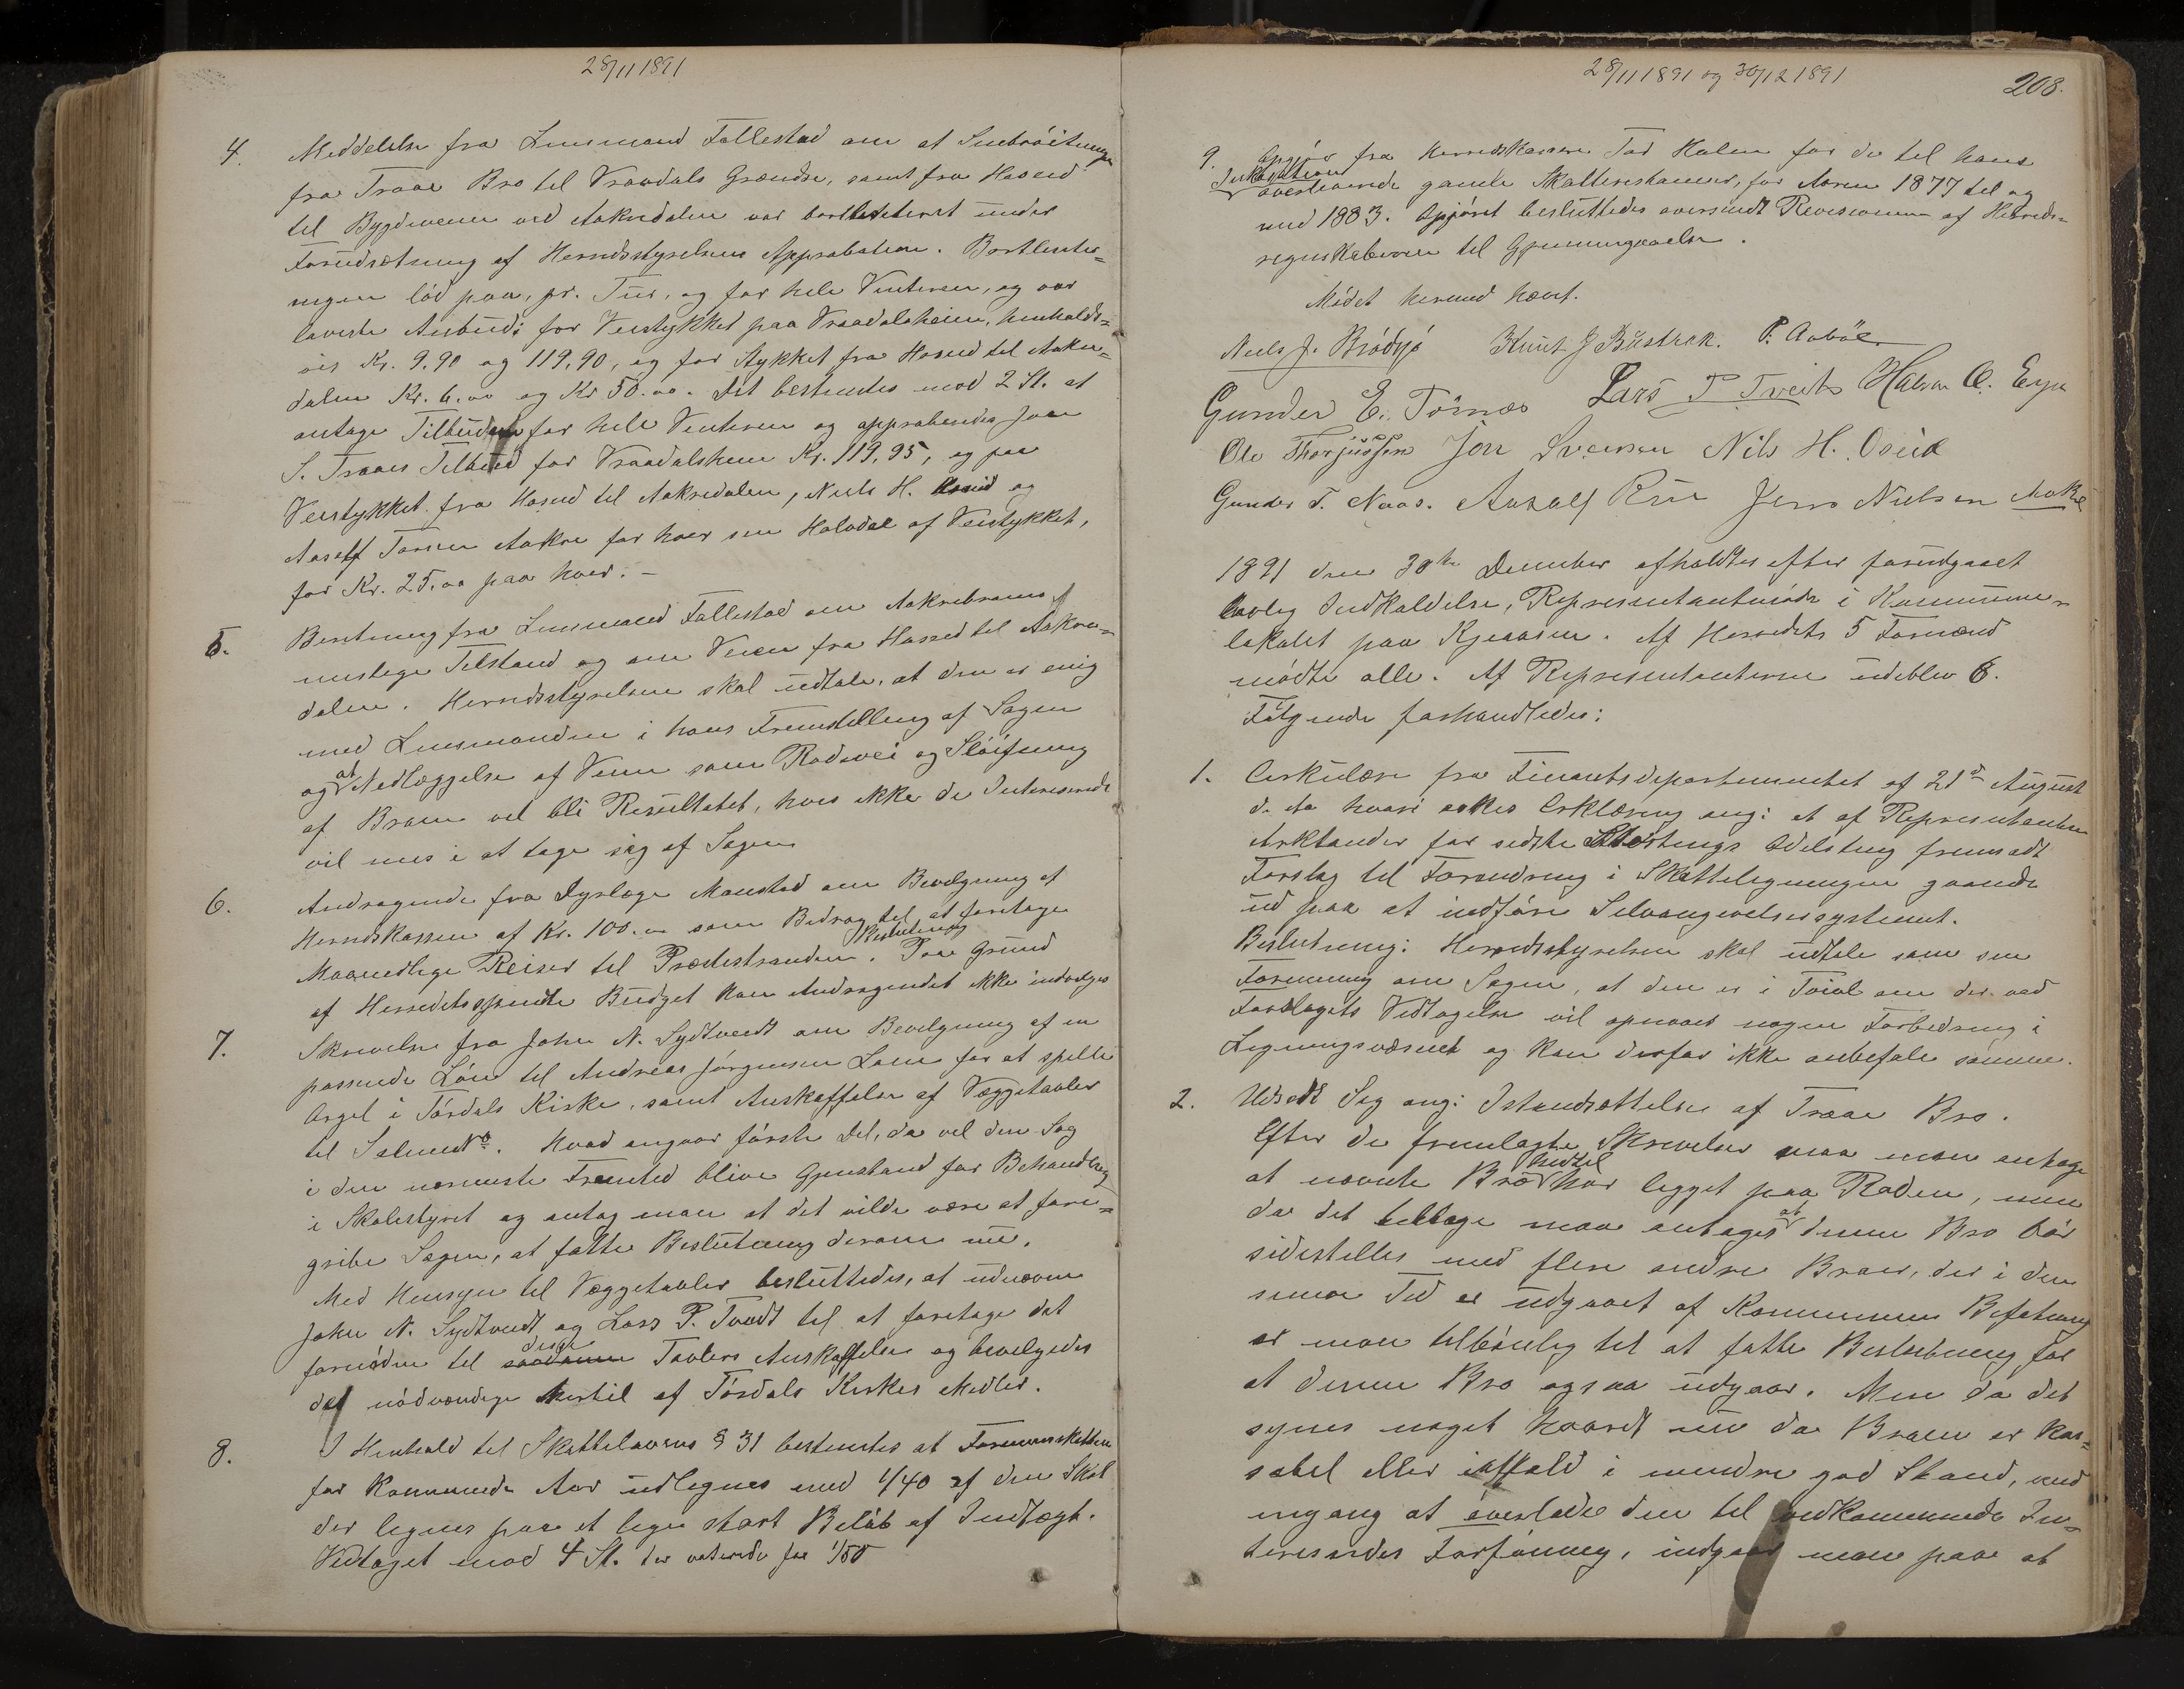 28/11 1891
4. Meddelelse fra Lensmand Fallestad om at Snebrøitningen
fra Traae Bro til Vraadals Grændse, samt fra Hasund
til Bygdeveien ved Aakredalen var bortliciteret under
Forudsætning af Herredsstyrelsens Approbation. Bortlicite=
ringen lød paa, pr. Tur, og for hele Vinteren, og var
laveste Anbud: for Veistykket paa Vraadalsheien, henholds=
vis Kr. 9.90 og 119,90, og for Stykket fra Hasund til Aakre=
dalen Kr. 6.00 og Kr 50.00. Det bestemtes mod 2 St. at
antage Tilbudene for hele Vinteren og approberedes Jon
S. Traaes Tilbud for Vraadalsheien Kr. 119,95, og paa
Veistykket fra Hasund til Aakredalen, Niels H. Oseid og
Aasulf Torsen Aakre for hver sin Halvdel af Veistykket,
for Kr. 25.00 paa hver. –
5. Beretning fra Lensmand Fallestad om Aakrebroens
mislige Tilstand og om Veien fra Hasund til Aakre=
dalen. Herredsstyrelsen skal udtale, at den er enig
med Lensmanden i hans Fremstilling af Sagen
og at Nedlæggelse af Veien som Rodevei og Sløifning
af Broen vil bli Resultatet, hvis ikke de Interesserede
vil være med i at tage sig af Sagen
6. Andragende fra Dyrlæge Manstad om Bevilgning af
Herredskassen af Kr. 100.00 som Bidrag til at foretage
Maanedlige Reiser til Præstestranden. Beslutning Paa Grund
af Herredets spændte Budget kan Andragendet ikke indvilges
7. Skrivelse fra John N. Sydtvedt om Bevilgning af en
passende Løn til Andreas Jørgensen Lom for at spille
Orgel i Tørdals Kirke, samt Anskaffelse af Væggetavler
til Salme No. Hvad angaar første Del, da vil den Sag
i den nærmeste Fremtid blive Gjenstand for Behandling
i Skolestyret og antog man at det vilde være at fore=
gribe Sagen, at fatte Beslutning derom nu.
Med Hensyn til Væggetavler besluttedes, at udnævne
John N. Sydtvedt og Lars P. Tvedt til at foretage det
fornødne til disse Tavlers Anskaffelse og bevilgedes
det nødvendige hertil af Tørdals Kirkes Midler.
8. I Henhold til Skattelovens § 31 bestemtes at Formuesskatten
for kommende Aar udlignes med 1/40 af den Skat
der lignes paa et lige stort Beløb af Indtægt.
Vedtaget mod 4 St. der voterede for 1/50
28/11 1891 og 30/12 1891
208.
9. Opgjør fra Herredskasserer Tor Halen for de til hans
Inkassation
overleverede gamle Skatterestancer, for Aarene 1877 til og
med 1883. Opgjøret besluttedes oversendt Revisionen af Herreds=
regnskaberne til Gjennemgaaelse.
Mødet hermed hævet.
Niels J. Brødsjø Knut J Bustrak. P. Aabøe
Gunder E. Tørnes Lars P Tveit Halvor O. Eye
Ole Thorjussen Jon Svensen Nils H. Oseid
Gunder T. Naas. Aasulf Rui Jens Nielsen Aakre
1891 den 30te December afholdtes efter forudgaaet
lovlig Indkaldelse, Representantmøde i Kommune=
lokalet paa Kjeaasen. Af Herredets 5 Formænd
mødte alle. Af Representanterne udeblev 6.
Følgende forhandledes:
1. Cirkulære fra Finantsdepartementet af 21de August
d. Aa hvori æskes Erklæring ang: et af Representanten
Arktander for sidste Storthings Odelsting fremsat
Forslag til Forandring i Skattelegningen gaaende
ud paa at indføre Selvangivelsessystemet.
Beslutning: Herredsstyrelsen skal udtale som sin
Formening om Sagen, at den er i Tvivl om der ved
Forslagets Vedtagelse vil opnaaes nogen Forbedring i
Legningsvæsenet og kan derfor ikke anbefale samme.
2. Udsat Sag ang: Istandsættelse af Traae Bro.
Efter de fremlagte Skrivelser maa man antage
at nævnte Bro hidtil har ligget paa Roden, men
da det tillige maa antages at denne Bro bør
sidestilles med flere andre Broer, der i den
senere Tid er udgaaet af Kommunens Befatning
er man tilbøielig til at fatte Beslutning for
at denne Bro ogsaa udgaar. Men da det
synes noget haardt nu da Broen er kas=
sabel eller ialfald i mindre god Stand, med
engang at overlade den til vedkommende In=
teresserdes Forføining, indgaar man paa at